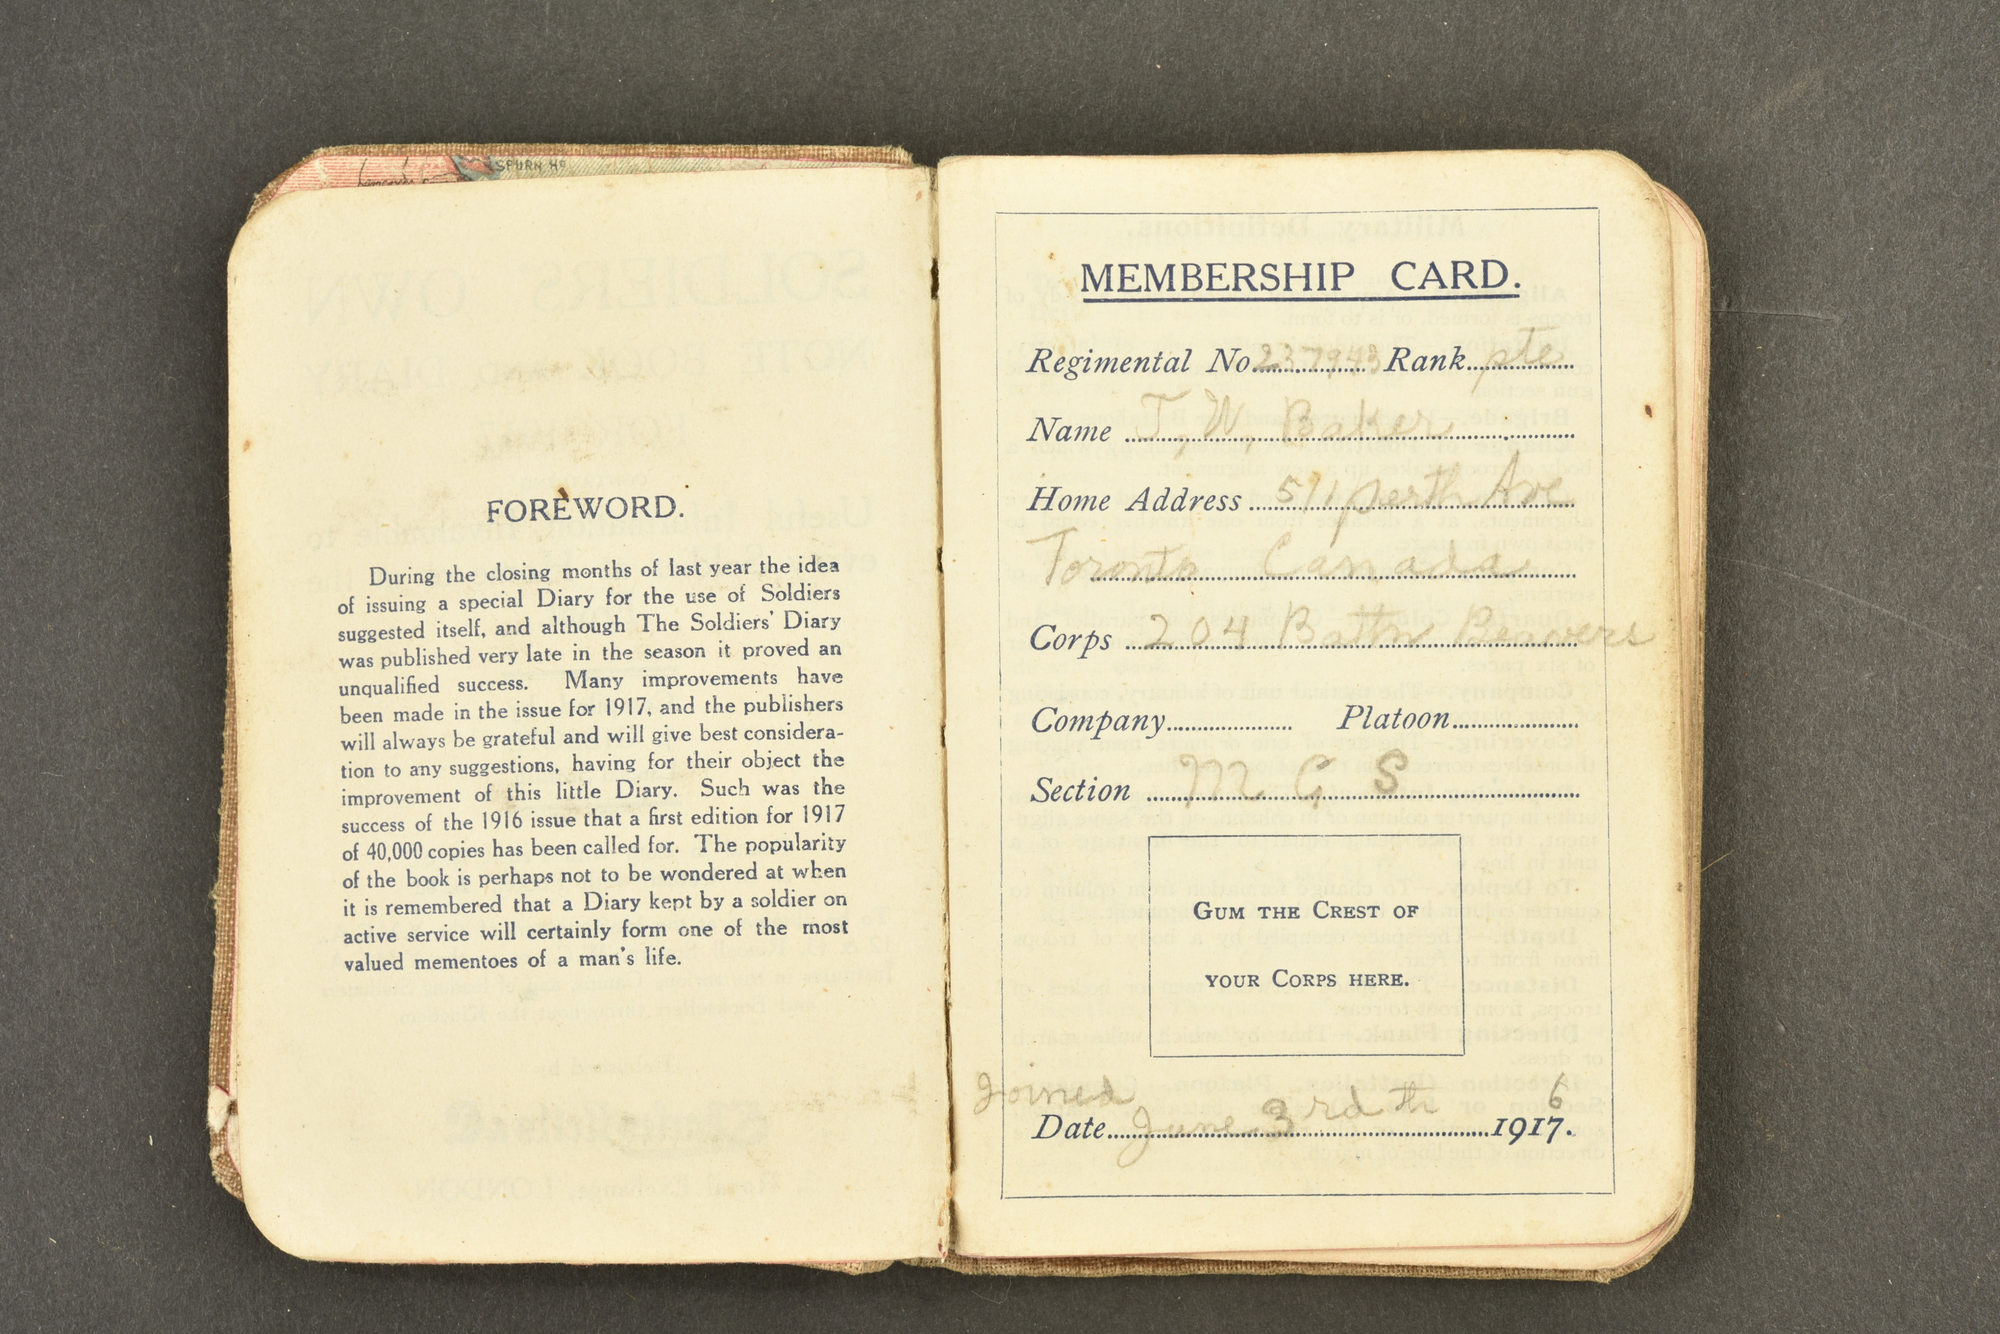 SPURN HD
FOREWORD.
During the closing months of last year the idea
of issuing a special Diary for the use of Soldiers
suggested itself, and although The Soldiers' Diary
was published very late in the season it proved an
unqualified success. Many improvements have
been made in the issue for 1917, and the publishers
will always be grateful and will give best considera-
tion to any suggestions, having for their object the
improvement of this little Diary. Such was the
success of the 1916 issue that a first edition for 1917
of 40,000 copies has been called for. The popularity
of the book is perhaps not to be wondered at when
it is remembered that a Diary kept by a soldier on
active service will certainly form one of the most
valued mementoes of a man's life.
MEMBERSHIP CARD.
Regimental No. 237943 Rank pte
Name T, W, Baker
Home Address 511 perth Ave
Toronto Canada
Corps 204 Battn Beavers
Company Platoon
Section M G S
GUM THE CREST OF
YOUR CORPS HERE.
Joined 6
Date June 3rd th 1917.